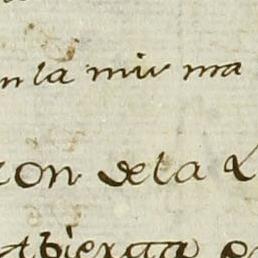 n la mis ma
on dela L
Abierta e